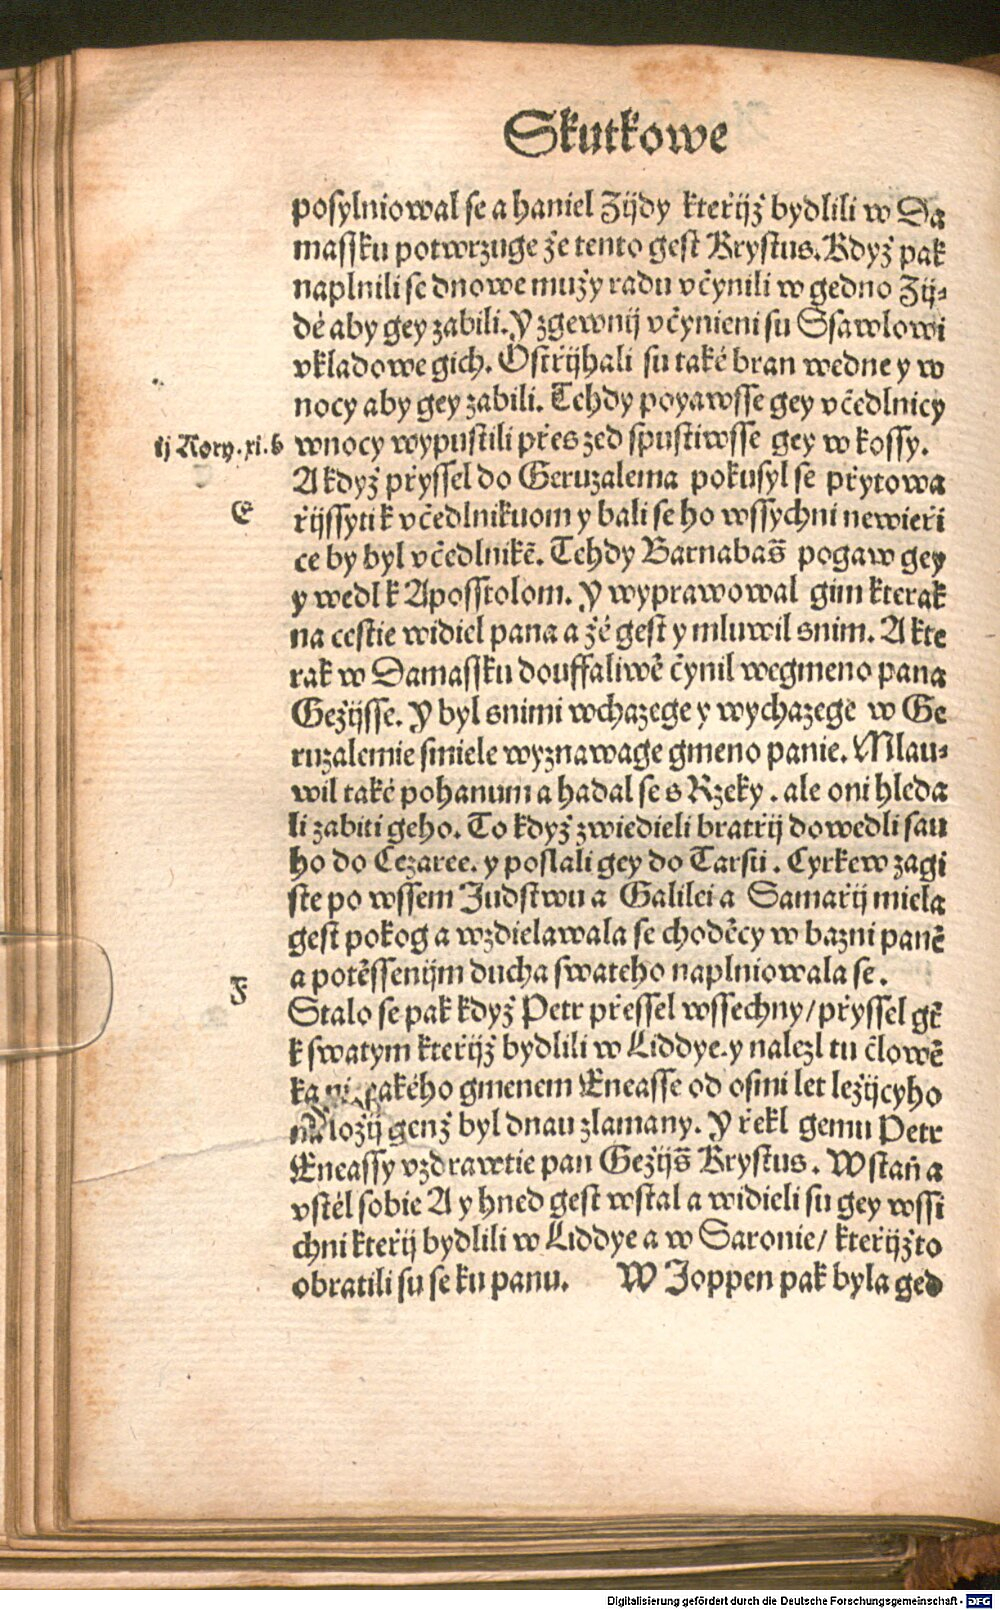 Skutkowe
posylniowal se a haniel Zijdy kteřijž bydlili w Da
massku potwrzuge že tento gest Krystus. Když pak
naplnili se dnowe mužy radu včynili w gedno Zij-
dé aby gey zabili. Y zgewnij včynieni su Ssawlowi
vkladowe gich. Ostřijhali su také bran wedne y w
nocy aby gey zabili. Tehdy poyawsse gey včedlnicy
ij Kory. xi. b
wnocy wypustili přes zed spustiwsse gey w kossy.
A když přyssel do Geruzalema pokusyl se přytowa
E
řijssyti k včedlnikuom y bali se ho wssychni newieři
ce by byl včedlnikē. Tehdy Barnabass pogaw gey
y wedl k Aposstolom. Y wyprawowal gim kterak
na cestie widiel pana a žé gest y mluwil snim. A kte
rak w Damassku douffaliwē čynil wegmeno pana
Gežijsse. Y byl snimi wchazege y wychazege w Ge
ruzalemie smiele wyznawage gmeno panie. Mlau-
wil také pohanum a hadal se s Rzeky. ale oni hleda
li zabiti geho. To když zwiedieli bratřij dowedli sau
ho do Cezaree. y poslali gey do Tarsu. Cyrkew zagi
ste po wssem Judstwu a Galilei a Samařij miela
gest pokog a wzdielawala se choděcy w bazni panē
a potěssenijm ducha swateho naplniowala se.
F
Stalo se pak když Petr přessel wssechny/ přyssel gē
k swatym kteřijž bydlili w Liddye. y nalezl tu člowě
ka gmenem Eneasse od osmi let ležijcyho
ložij genž byl dnau zlamany. Y řekl gemu Petr
Eneassy vzdrawtie pan Gežijs Krystus. Wstaň a
vstél sobie A y hned gest wstal a widieli su gey wssi
chni kteřij bydlili w Liddye a w Saronie/ kteřijžto
obratili su se ku panu. W Joppen pak byla ged
Digitalisierung gefördert durch die Deutsche Forschungsgemeinschaft - DFG